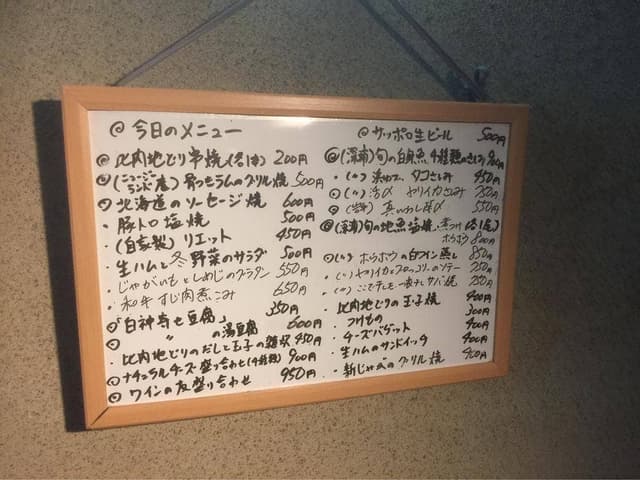 ◎ 今日のメニュー
◎ 比内地どり串焼(各1本) 200円
◎ (ニュージーランド産) 骨つきラムのグリル焼 500円
◎ 北海道のソーセージ焼 600円
・ 豚トロ塩焼 500円
・ (自家製) リエット 450円
・ 生ハムと冬野菜のサラダ 500円
・ じゃがいもとしめじのグラタン 550円
・ 和牛すじ肉煮こみ 650円
◎ 「白神寄せ豆腐」 350円
◎ 〃 の湯豆腐 600円
・ 比内地どりのだしと玉子の雑炊 450円
◎ ナチュラルチーズ盛り合わせ(4種類) 900円
◎ ワインの友盛り合わせ 950円
◎ サッポロ生ビール 500円
◎ (深浦)旬の白身魚4種類のさしみ 900円
・ (〃) タコさしみ 450円
◎ (〃) 活〆 ヤリイカさしみ 750円
真いわし 550円
◎ (深浦)旬の地魚塩焼・煮つけ(各1尾)
ホウボウ 800円
◎ (〃) ホウボウの白ワイン蒸し 850円
・ (〃) ヤリイカとブロッコリーのソテー 750円
・ (〃) サバ焼 750円
・ 比内地どりの玉子焼 400円
・ つけもの 300円
・ チーズバゲット 400円
・ 生ハムのサンドイッチ 400円
・ 新じゃがのグリル焼 400円